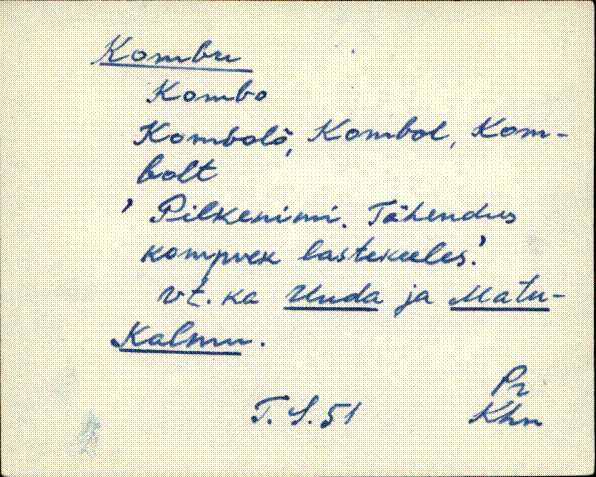 Kombu
Kombo
Kombolõ, Kombol, Kom-
bolt
' Pilkenimi. Tähendus
kompvek lastekeeles.'
vt. ka Uuda ja Matu-
Kalmu.
Pr
T. S. 51 Khn